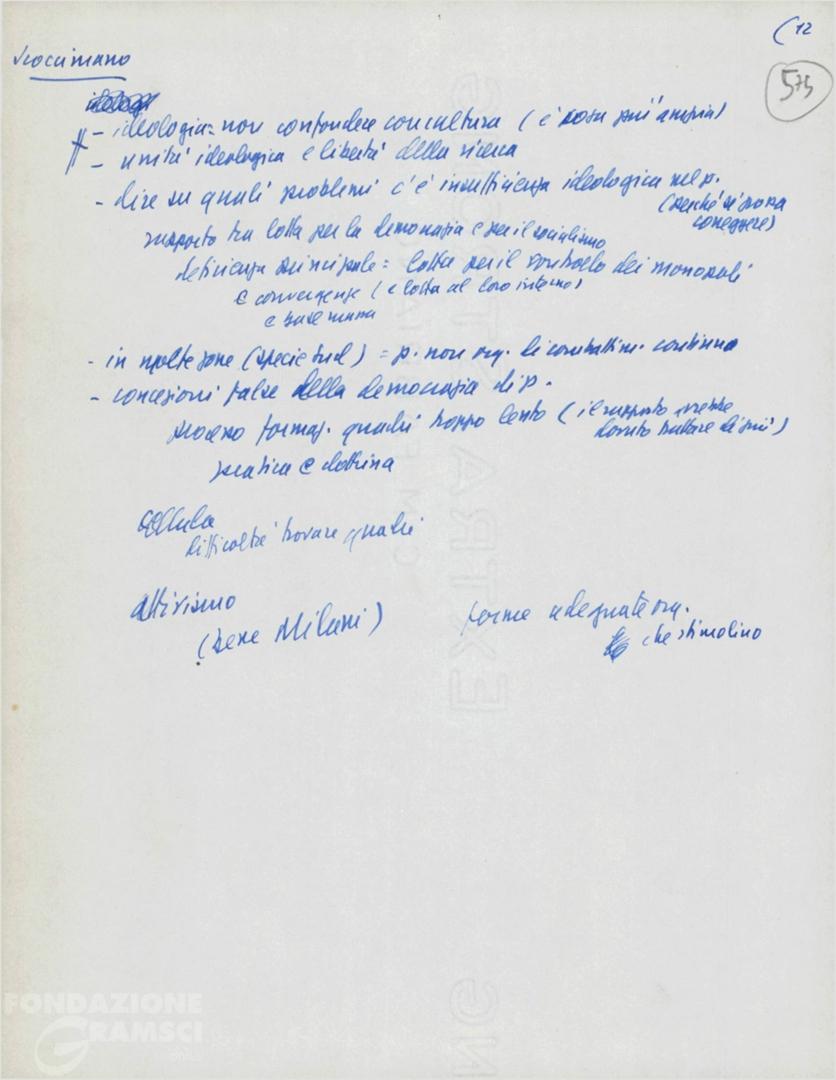 (12
575
Scoccimarro
- ideologia = non confondere con cultura (è cosa più ampia)
- unità ideologica e libertà della ricerca
- dire su quali problemi c'è insufficienza ideologica nel p.
(perché si possa
correggere)
rapporto tra lotta per la democrazia e per il socialismo
deficienza principale = lotta per il controllo dei monopoli
e convergenze (e lotta al loro interno)
e
- in molte zone (specie Sud) = p. non org. di combattim. continuo
- concezioni false della democrazia di p.
processo formaz. quadri troppo lento (il rapporto avrebbe
dovuto trattare di più)
pratica e dottrina
cellula
difficoltà trovare quadri
attivismo
(bene Milani)
forme adeguate org.
che stimolino
FONDAZIONE
GRAMSCI